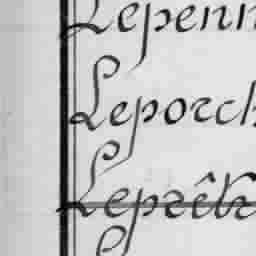 Lepenn
Leporch
Leprêtr